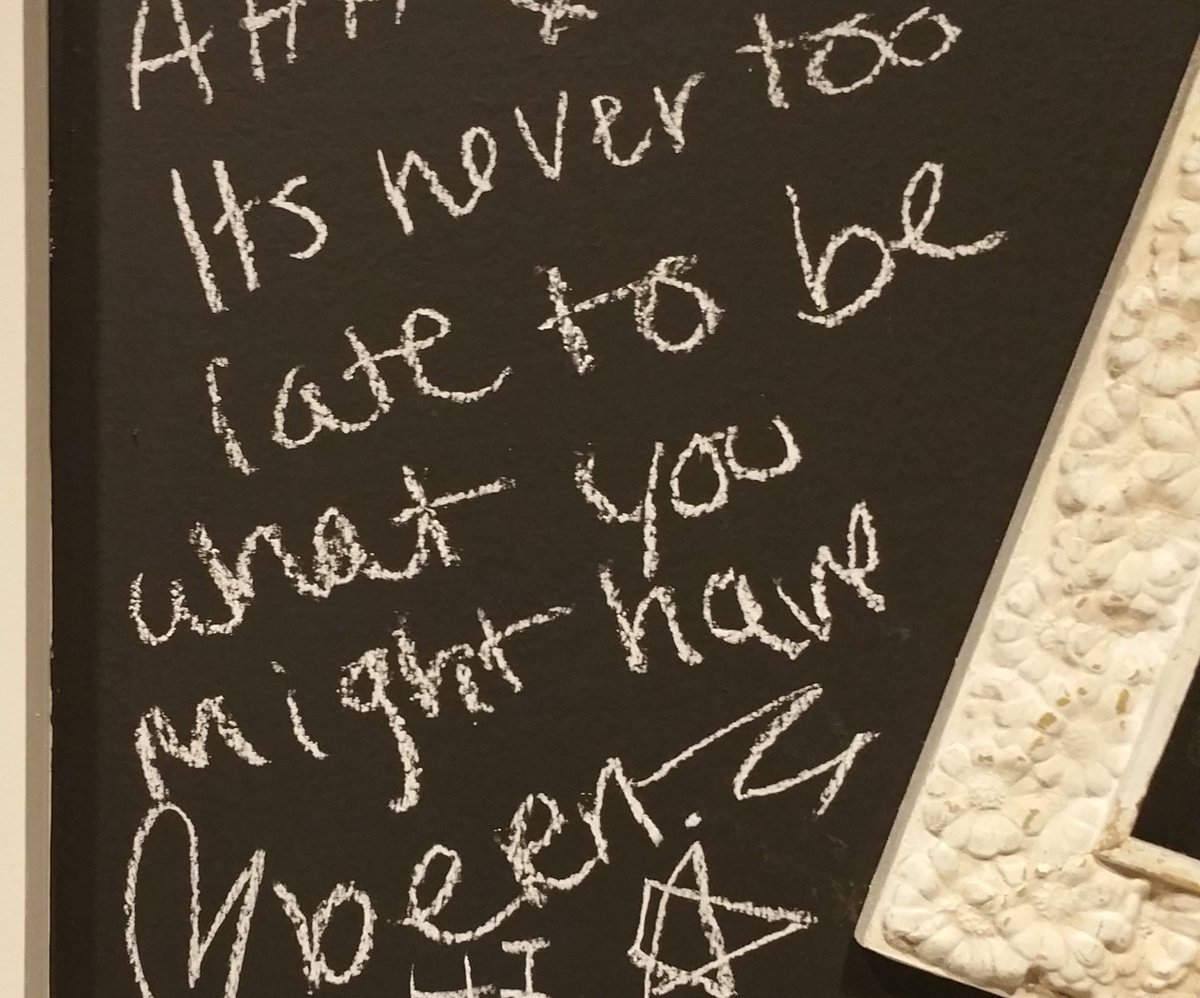 Its never too
late to be
what you
might have
been.
HI